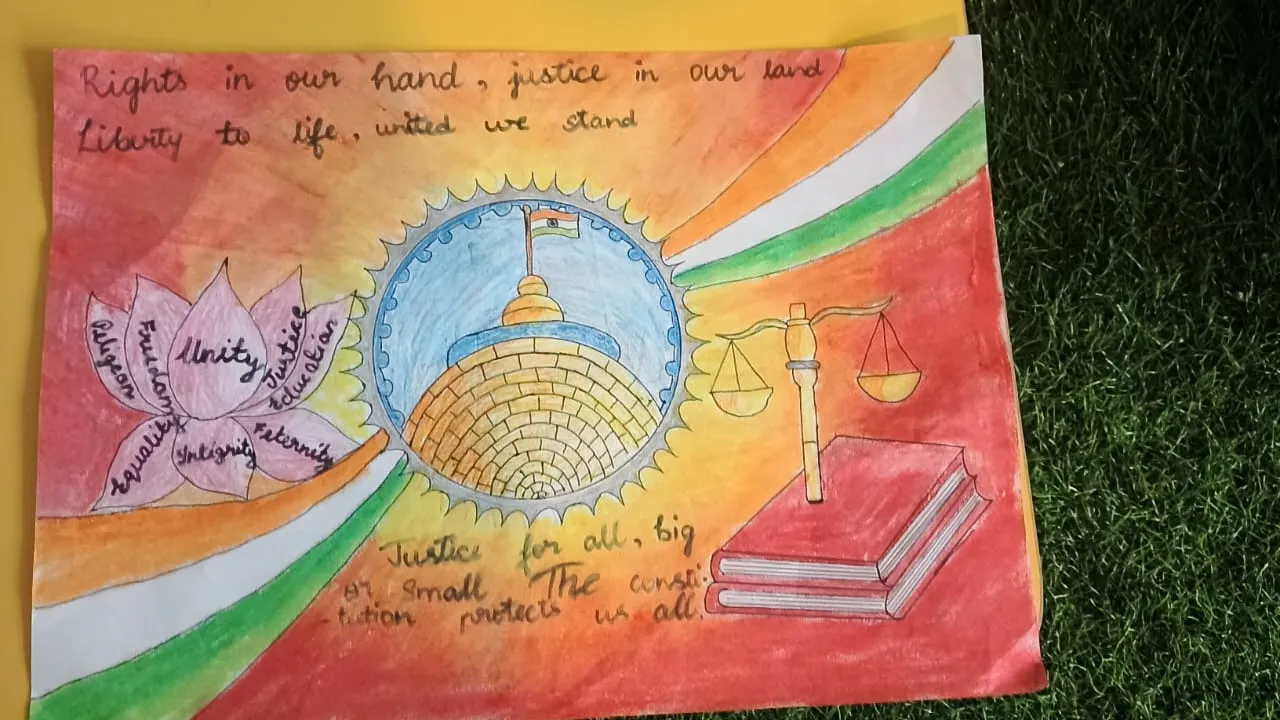 Rights in our hand, justice in our land
Liberty to life, united we stand
Religeon
Freedam
Unity
Justice
Education
Equality
Intigrity
Feternity
Justice for all, big
or small The consti-
-tution protects us all.